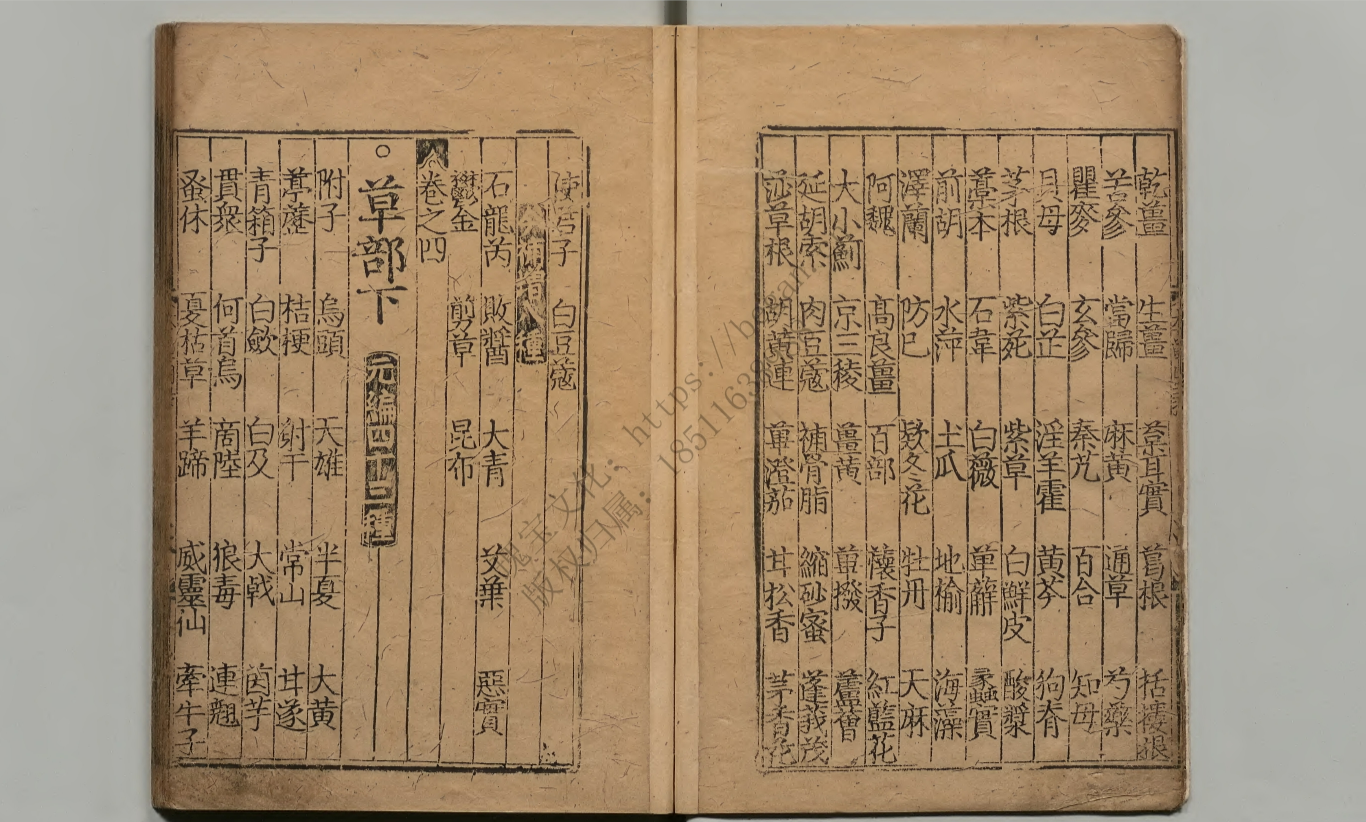 乾薑 生薑 葈耳實 葛根 括樓根
苦參 當歸 麻黃 通草 芍藥
瞿麥 玄參 秦艽 百合 知母
貝母 白芷 淫羊霍 黃芩 狗脊
茅根 紫菀 紫草 白鮮皮 酸漿
藁本 石韋 白薇 萆薢 蠡實
前胡 水萍 土瓜 地榆 海藻
澤蘭 防已 欵冬花 牡丹 天麻
阿魏 髙良薑 百部 櫰香子 紅藍花
大小薊 京三稜 薑黃 蓽撥 蘆薈
延胡索 肉豆蔻 補骨脂 縮砂蜜 蓬莪茂
莎草根 胡黃連 蓽澄茄 甘松香 茅香花
使君子 白豆蔻
補增八種
石龍芮 敗醬 大青 艾葉 惡實
鬱金 剪草 昆布
卷之四
○草部下 元編四十二種
附子 烏頭 天雄 半夏 大黃
葶藶 桔梗 射干 常山 甘遂
青箱子 白歛 白及 大戟 茵芋
貫衆 何首烏 啇陸 狼毒 連翹
蚤休 夏枯草 羊蹄 威靈仙 牽牛子
瑰宝文化：https://b
版权归属：1851163